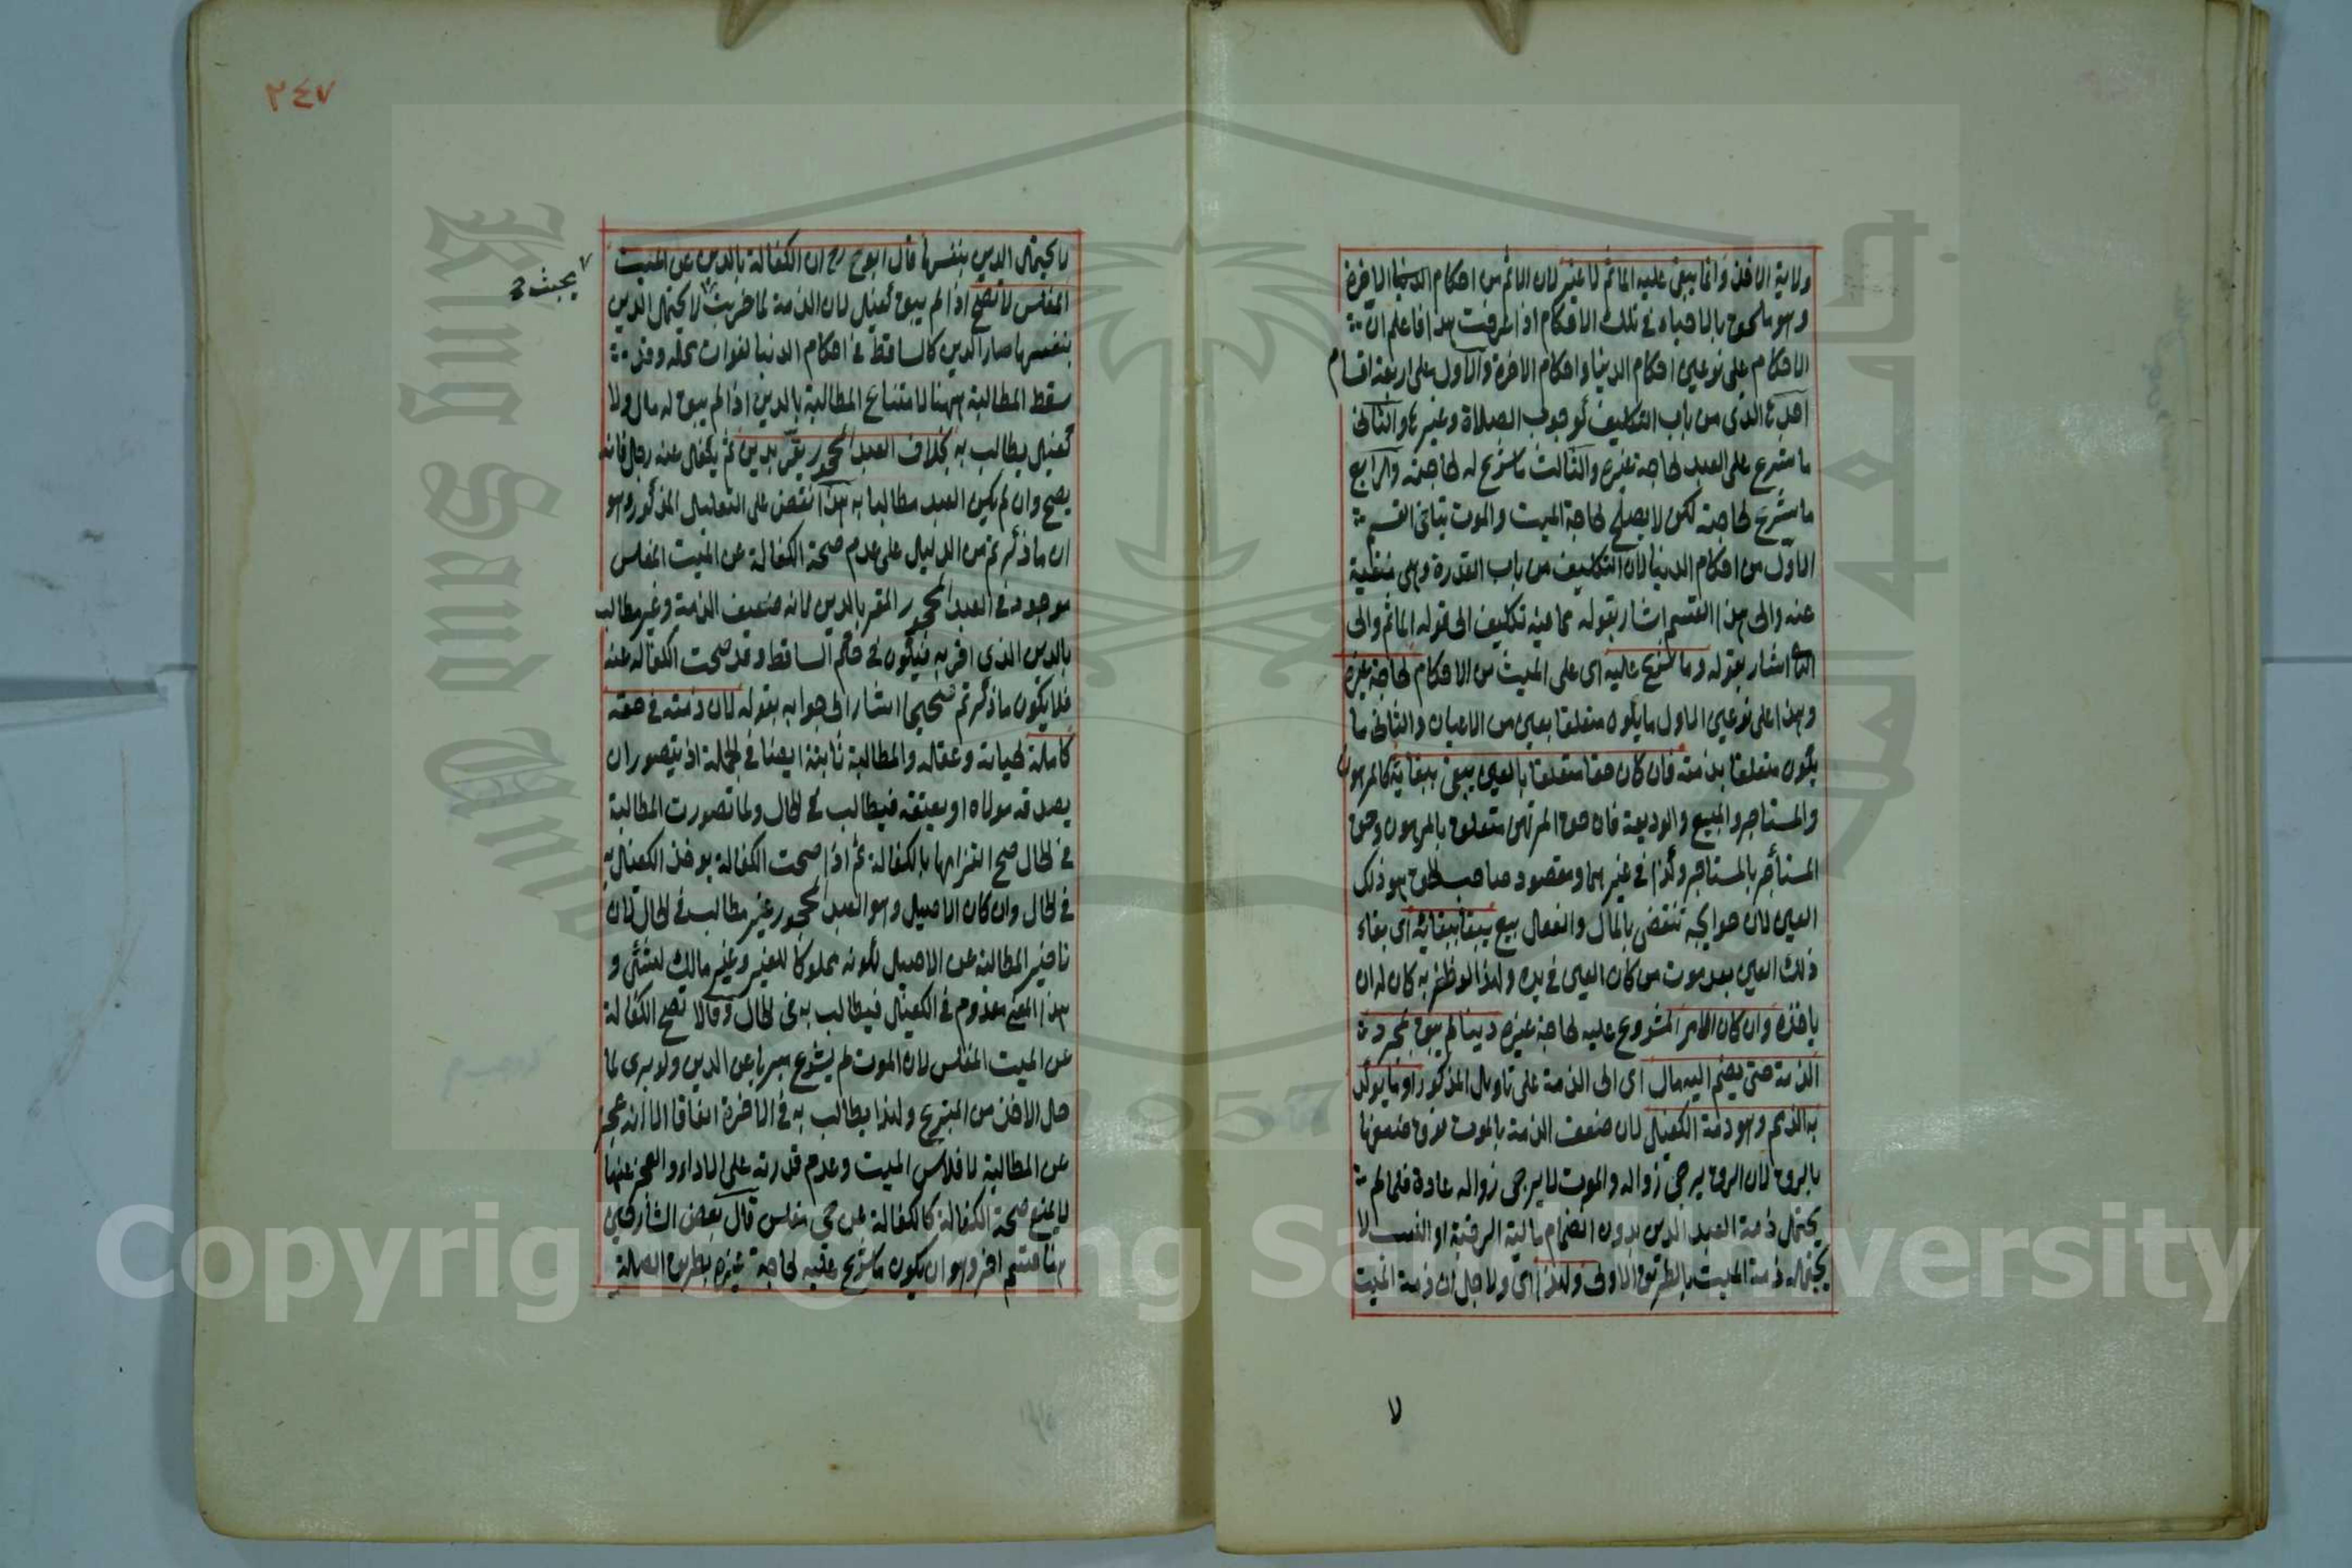 ولاية الاخذ وانما يبقى عليه الماثم لا غير لان الاثم من احكام الاخرة
وهو ملحق بالاحياء في تلك الاحكام اذا عرفت هذا فاعلم ان
الاحكام على نوعين احكام الدنيا واحكام الاخرة والاول على اربعة اقسام
احدها الذي من باب التكليف كوجوب الصلاة وغيرها والثاني
ما شرع على العبد لحاجة غيره والثالث ما شرع له لحاجته والرابع
ما شرع لحاجته لكن لا يصلح لحاجة الميت والموت ينافي القسم
الاول من احكام الدنيا لان التكليف من باب القدرة وهي منتفية
عنه والى هذا القسم اشار بقوله مما فيه تكليف الى قوله الماثم والى
الثا اشار بقوله وما شرع عليه اى على الميت من الاحكام لحاجة غيره
وهذا على نوعين الاول ما يكون متعلقا بعين من الاعيان والثاني ما
يكون متعلقا بذمته فان كان حقا متعلقا بالعين يبقى ببقائه كالمرهون
والمستاجر والمبيع والوديعة فان حق المرتهن متعلق بالمرهون وحق
المستأجر بالمستاجر وكذا في غيرهما ومقصود صاحب الحق هو ذلك
العين لان حوايجه تنقضي بالمال والفعل بيع يبقا ببقائه اى بقاء
ذلك العين بعد موت من كان العين في يده ولهذا لو ظفر به كان له ان
ياخذه وان كان الامر المشروع عليه لحاجة غيره دينا لم يبق بمجرد
الذمة حتى يضم اليه مال اى الى الذمة على تاويل المذكور او ما يوكد
به الذمم وهو ذمة الكفيل لان ضعف الذمة بالموت فوق ضعفها
بالرق لان الرق يرجى زواله والموت لا يرجى زواله عادة فلما لم
يحتمل ذمة العبد الدين بدون انضمام مالية الرقبة او الكسب لا
يحتمله ذمة الميت بالطريق الاولى ولهذا اى ولاجل ان ذمة الميت
لا
٢٤٧
لا يحتمل الدين بنفسها قال ابو ح رح ان الكفالة بالدين عن الميت
المفلس لا تصح اذا لم يبق كفيل لان الذمة لما خربت لا يحتمل الدين
بحيث
بنفسها صار الدين كالساقط في احكام الدنيا لفوات محله وقد
سقط المطالبة ههنا لامتناع المطالبة بالدين اذا لم يبق له مال ولا
كفيل يطالب به بخلاف العبد المحجور يقر بدين ثم يكفل عنه رجل فانه
يصح وان لم يكن العبد مطالبا به هذا نقض على التعليل المذكور وهو
ان ما ذكرتم من الدليل على عدم صحة الكفالة عن الميت المفلس
موجود في العبد المحجور المقر بالدين لانه ضعيف الذمة وغير مطالب
بالدين الذي اقر به فيكون في حكم الساقط وقد صحت الكفالة عنه
فلا يكون ما ذكرتم صحيحا اشار الى جوابه بقوله لان ذمته في حقه
كاملة لحياته وعقله والمطالبة ثابتة ايضا في الجملة اذ يتصور ان
يصدقه مولاه او يعتقه فيطالب في الحال ولما تصورت المطالبة
في الحال صح التزامها بالكفالة ثم اذا صحت الكفالة يوخذ الكفيل به
في الحال وان كان الاصيل وهو العبد المحجور غير مطالب في الحال لان
تاخير المطالبة عن الاصيل لكونه مملوكا للغير وغير مالك لشئ و
هذا المعنى معدوم في الكفيل فيطالب به في الحال وقالا تصح الكفالة
عن الميت المفلس لان الموت لم يشرع مبريا عن الدين ولا برى لما
حل الاخذ من المتبرع ولهذا يطالب به في الاخرة اتفاقا الا انه عجز
عن المطالبة لافلاس الميت وعدم قدرته على الاداء والعجز عنها
لا يمنع صحة الكفالة كالكفالة عن حي مفلس قال بعض الشارحين
هنا قسم اخر وهو ان يكون ما شرع عليه لحاجة غيره بطريق الصلة
Copyright © King Saud University
King Saud University
1957